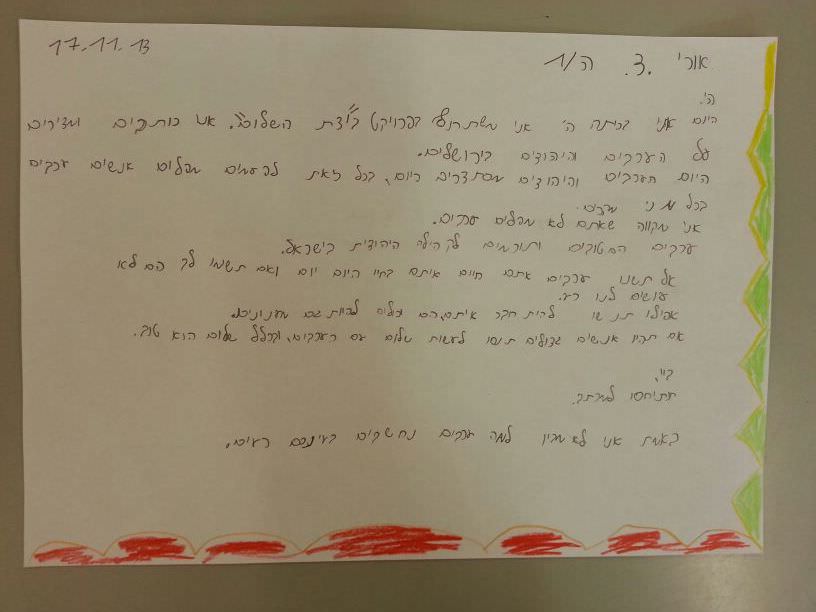 17.11.13
אורי .צ. ה/1
הי.
היום אני בכיתה ה' אני משתתף בפרויקט קבוצת השלום". אנו כותבים ומציירים
על הערבים והיהודים בירושלים.
היום הערבים והיהודים מסתדרים היום, בכל זאת לפעמים מפלים אנשים ערבים
בכל מני מקרים.
אני מקווה שאתם לא מפלים ערבים.
ערבים הם טובים ותורמים לקהילה היהודית בישראל.
אל תשנו ערבים אתם חיים איתם בחיי היום יום ואם תשמי לב הם לא
עושים לנו רע.
אפילו תנסו להיות חבר איתם, הם יכולים להיות גם מענינים.
אם תהיו אנשים גדולים תנסו לעשות שלום עם הערבים, ובכלל שלום הוא טוב.
ביי,
תתיחסו למכתב.
באמת אני לא מבין למה ערבים נחשבים בעינכם רעים.